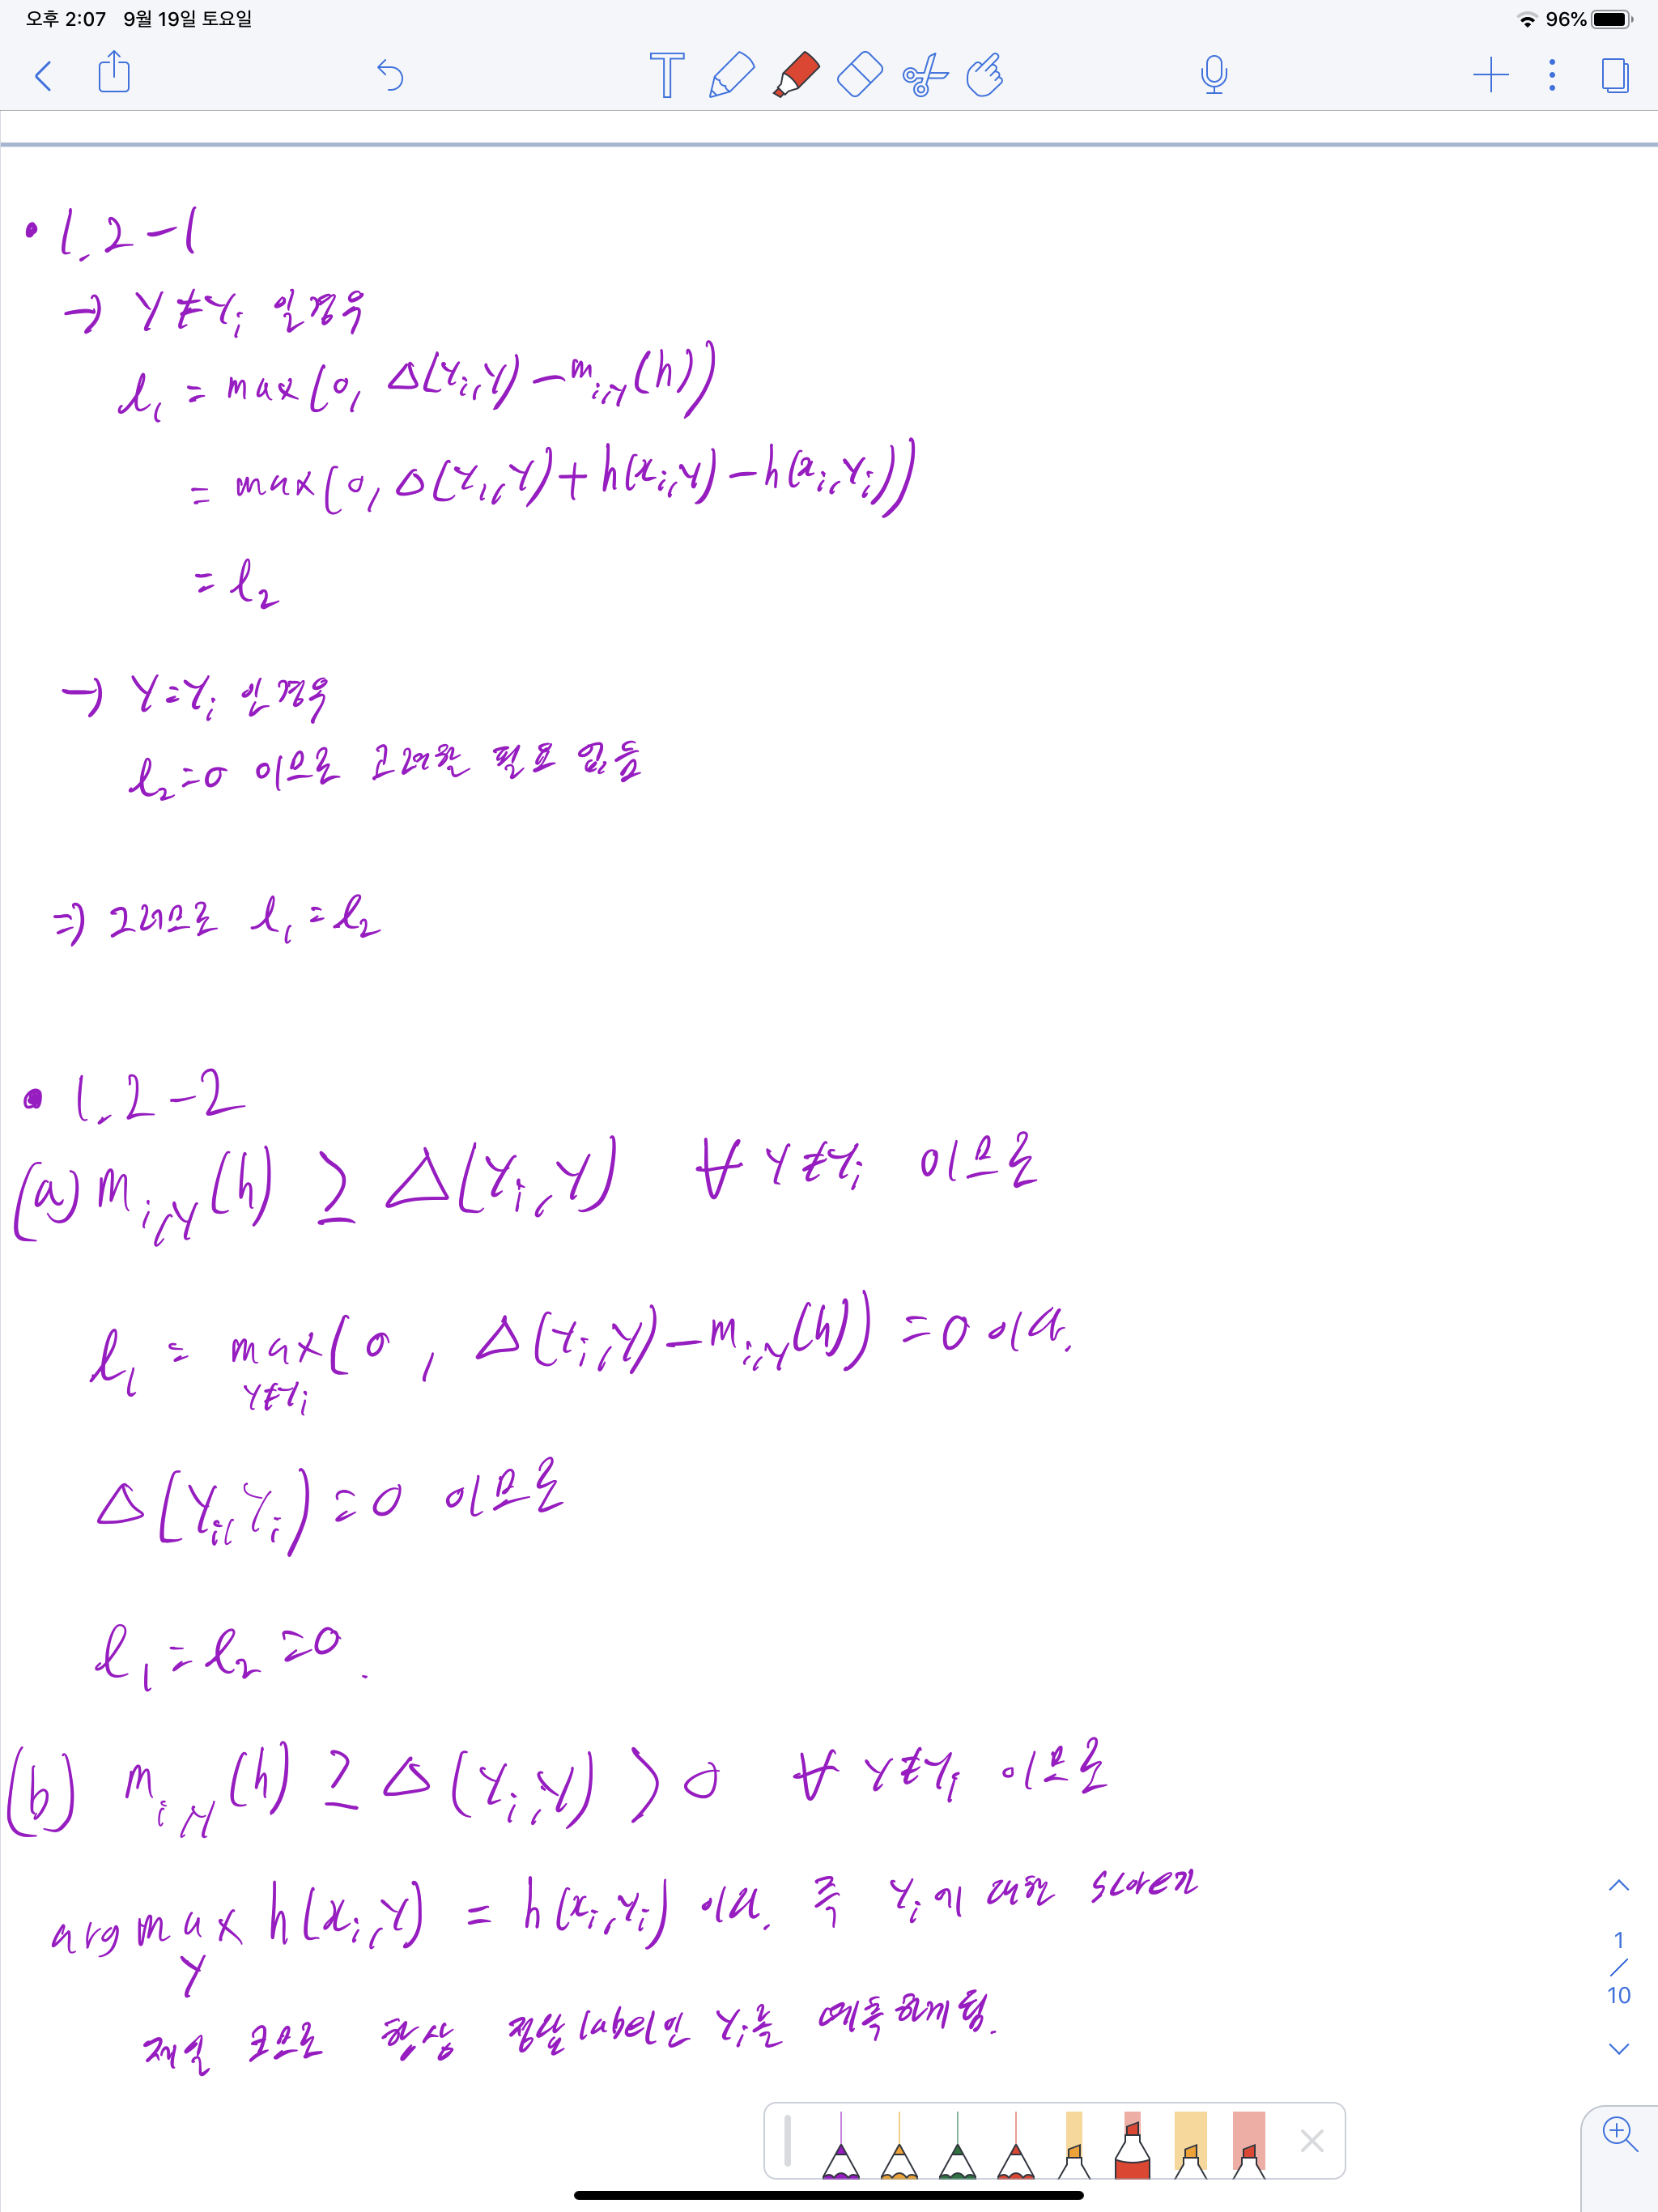 오후 2:07 9월 19일 토요일 96%
T
• 1.2-1
→ Y≠Yᵢ 일경우
ℓ₁ = max(0, Δ(Yᵢ,Y) - mᵢ,Y(h))
= max(0, Δ(Yᵢ,Y) + h(xᵢ,Y) - h(xᵢ,Yᵢ))
= ℓ₂
→ Y=Yᵢ 인경우
ℓ₂=0 이므로 고려할 필요 없음
⇒ 그러므로 ℓ₁ = ℓ₂
• 1.2-2
(a) mᵢ,Y(h) ≥ Δ(Yᵢ,Y) ∀ Y≠Yᵢ 이므로
ℓ₁ = max(0, Δ(Yᵢ,Y) - mᵢ,Y(h)) = 0 이다.
Y≠Yᵢ
Δ(Yᵢ,Yᵢ) = 0 이므로
ℓ₁ = ℓ₂ = 0.
(b) mᵢ,Y(h) ≥ Δ(Yᵢ,Y) > 0 ∀ Y≠Yᵢ 이므로
argmax h(xᵢ,Y) = h(xᵢ,Yᵢ) 이다. 즉 Yᵢ에 대한 score가
Y
제일 크므로 항상 정답 label인 Yᵢ를 예측하게 됨.
1
/
10